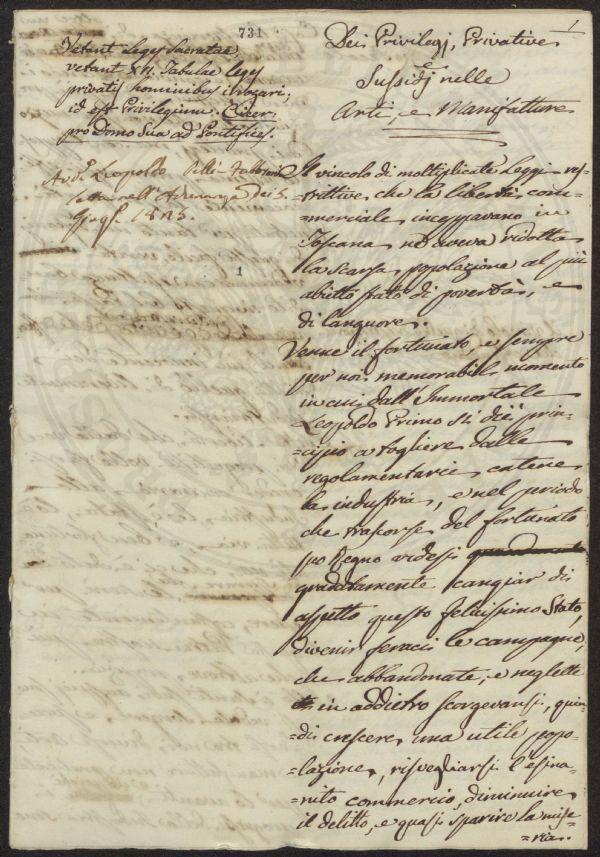 731
1
Vetant Leges Sacratae,
vetant XII. Tabulae leges
privatis hominibus irrogari;
id est Privilegium. Cicer:
pro Domo Sua ad Pontifices.
Avv. Leopoldo Pelli-Fabbroni
letta nell'Adunanza dei 5.
1823.
1
Dei Privilegj, Privative
e
Sussidj nelle
Arti, e Manifatture
Il vincolo di moltiplicate Leggi re=
=strittive, che la libertà com=
=merciale inceppavano in
Toscana ne aveva ridotta
la scarsa popolazione al più
abietto stato di povertà, e
di languore.
Venne il fortunato, e sempre
per noi memorabile momento
in cui dall'Immortale
Leopoldo Primo si diè prin=
=cipio a togliere dalle
regolamentarie catene
la industria, e nel periodo
che trascorse del fortunato
suo Regno videsi
gradatamente cangiar di
aspetto questo felicissimo Stato,
divenir feraci le campagne,
che abbandonate, e neglette
in addietro scorgevansi, quin=
=di crescere una utile popo=
=lazione, risvegliarsi l'esina=
=nito commercio, diminuire
il delitto, e quasi sparire la mise=
=ria.